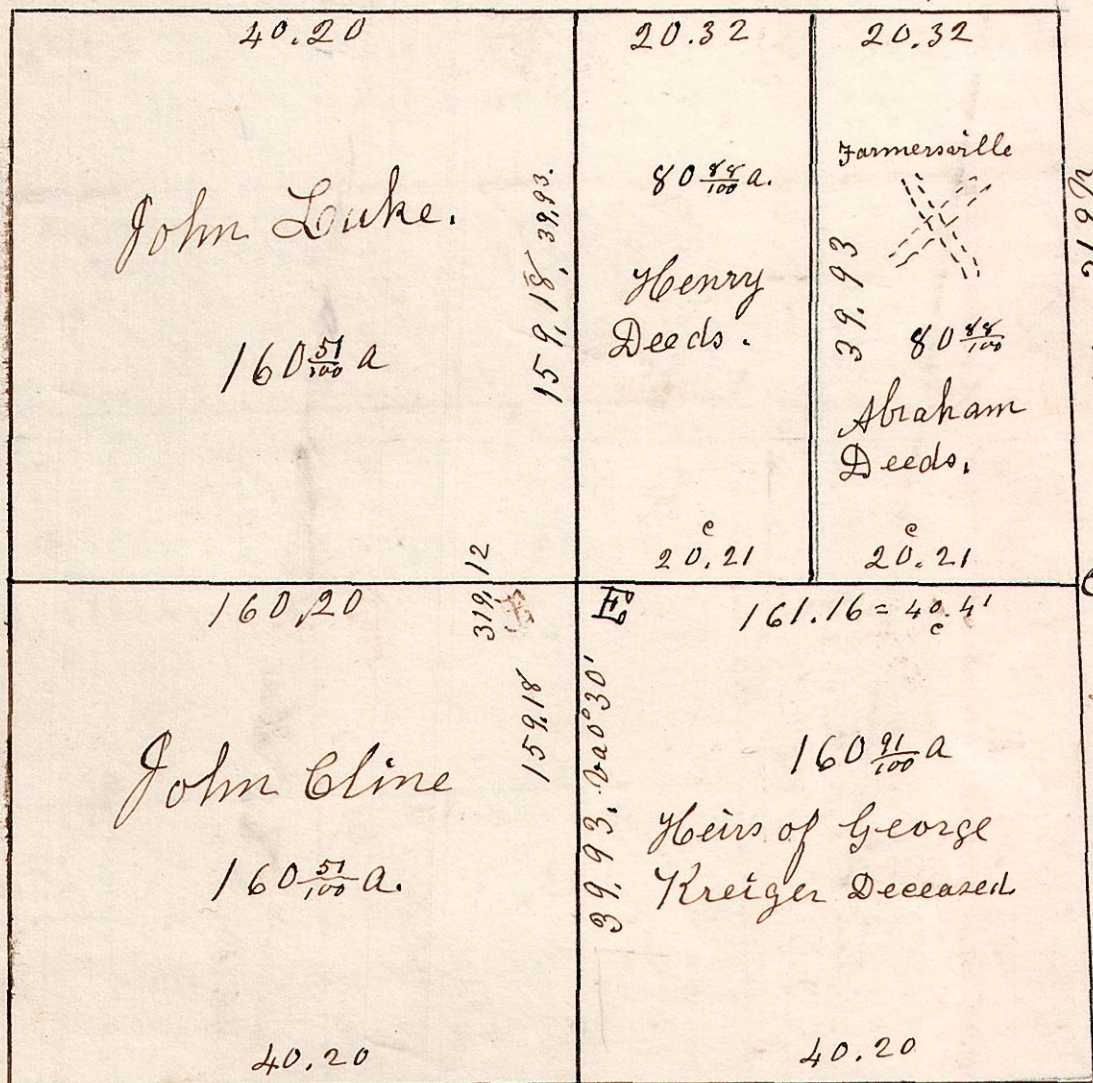 40.20
John Luke.
160 51/100 a
159,18, 39,93.
20.32
80 88/100 a.
Henry
Deeds.
c
20,21
20.32
Farmersville
39.93
80 88/100
Abraham
Deeds.
c
20.21
319,12
160,20
159,18
John Cline
160 51/100 a.
40.20
E
161.16 = 40.41
c
39,93. va 0°30'
160 91/100 a
Heirs of George
Kreiger Deceased
40.20